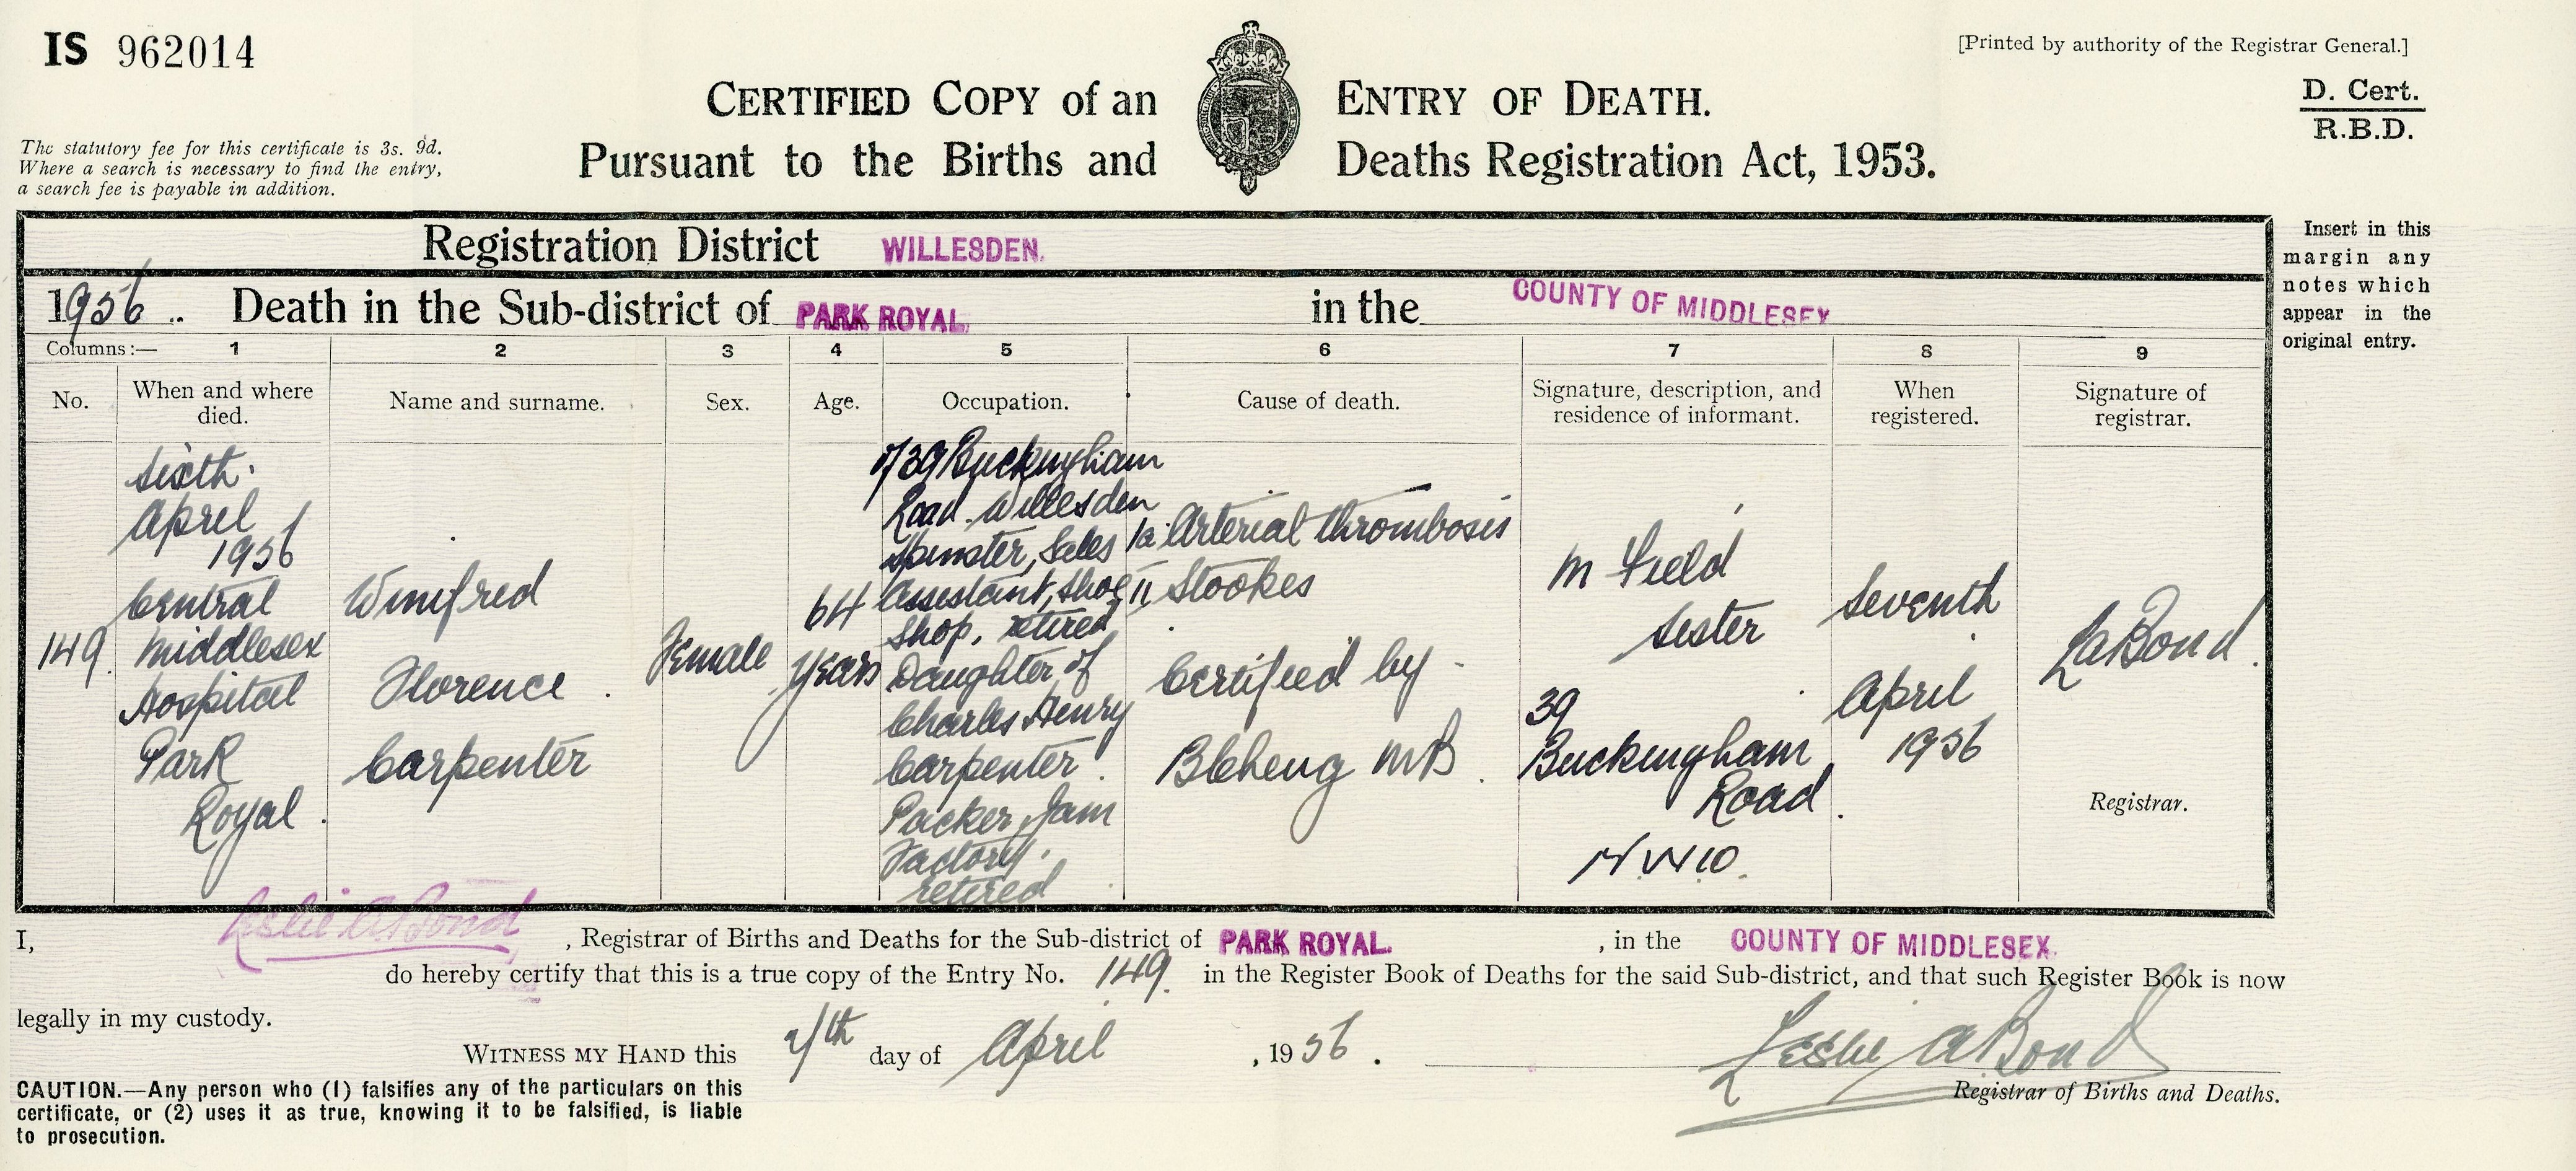 IS 962014
[Printed by authority of the Registrar General.]
CERTIFIED COPY of an ENTRY OF DEATH.
D. Cert.
R.B.D.
The statutory fee for this certificate is 3s. 9d.
Where a search is necessary to find the entry,
a search fee is payable in addition.
Pursuant to the Births and Deaths Registration Act, 1953.
Registration District WILLESDEN.
Insert in this
margin any
notes which
appear in the
original entry.
1956.. Death in the Sub-district of PARK ROYAL. in the COUNTY OF MIDDLESEX
Columns:— 1 2 3 4 5 6 7 8 9
No.
When and where
died.
Name and surname.
Sex.
Age.
Occupation.
Cause of death.
Signature, description, and
residence of informant.
When
registered.
Signature of
registrar.
149.
Sixth
April
1956
Central
Middlesex
Hospital
Park
Royal.
Winifred
Florence
Carpenter
Female
64
years
of 39 Buckingham
Road. Willesden
Spinster, Sales
Assistant, Shoe
Shop, retired
Daughter of
Charles Henry
Carpenter.
Packer, Jam
Factory.
retired
1a Arterial thrombosis
II Stookes
Certified by
MB.
M Field
Sister
39
Buckingham
Road.
N.W.10.
Seventh
April
1956
LABond.
Registrar.
I, Leslie A Bond, Registrar of Births and Deaths for the Sub-district of PARK ROYAL., in the COUNTY OF MIDDLESEX.
do hereby certify that this is a true copy of the Entry No. 149. in the Register Book of Deaths for the said Sub-district, and that such Register Book is now
legally in my custody.
WITNESS MY HAND this 7th day of April, 1956.
Leslie A Bond
Registrar of Births and Deaths.
CAUTION.—Any person who (1) falsifies any of the particulars on this
certificate, or (2) uses it as true, knowing it to be falsified, is liable
to prosecution.